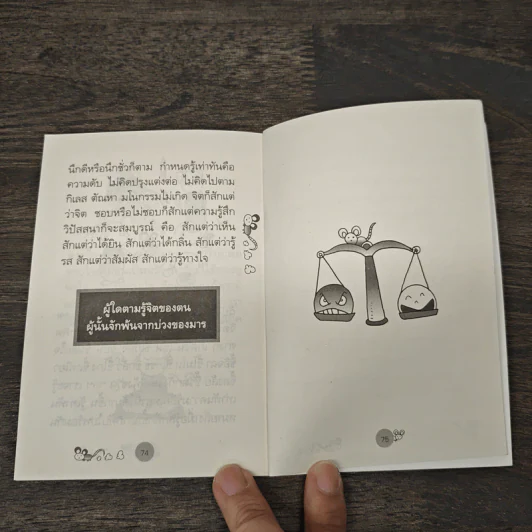 นึกดีหรือนึกชั่วก็ตาม กำหนดรู้เท่าทันคือ
ความดับ ไม่คิดปรุงแต่งต่อ ไม่คิดไปตาม
กิเลส ตัณหา มโนกรรมไม่เกิด จิตก็สักแต่
ว่าจิต ชอบหรือไม่ชอบก็สักแต่ความรู้สึก
วิปัสสนาก็จะสมบูรณ์ คือ สักแต่ว่าเห็น
สักแต่ว่าได้ยิน สักแต่ว่าได้กลิ่น สักแต่ว่ารู้
รส สักแต่ว่าสัมผัส สักแต่ว่ารู้ทางใจ
ผู้ใดตามรู้จิตของตน
ผู้นั้นจักพ้นจากบ่วงของมาร
74
75